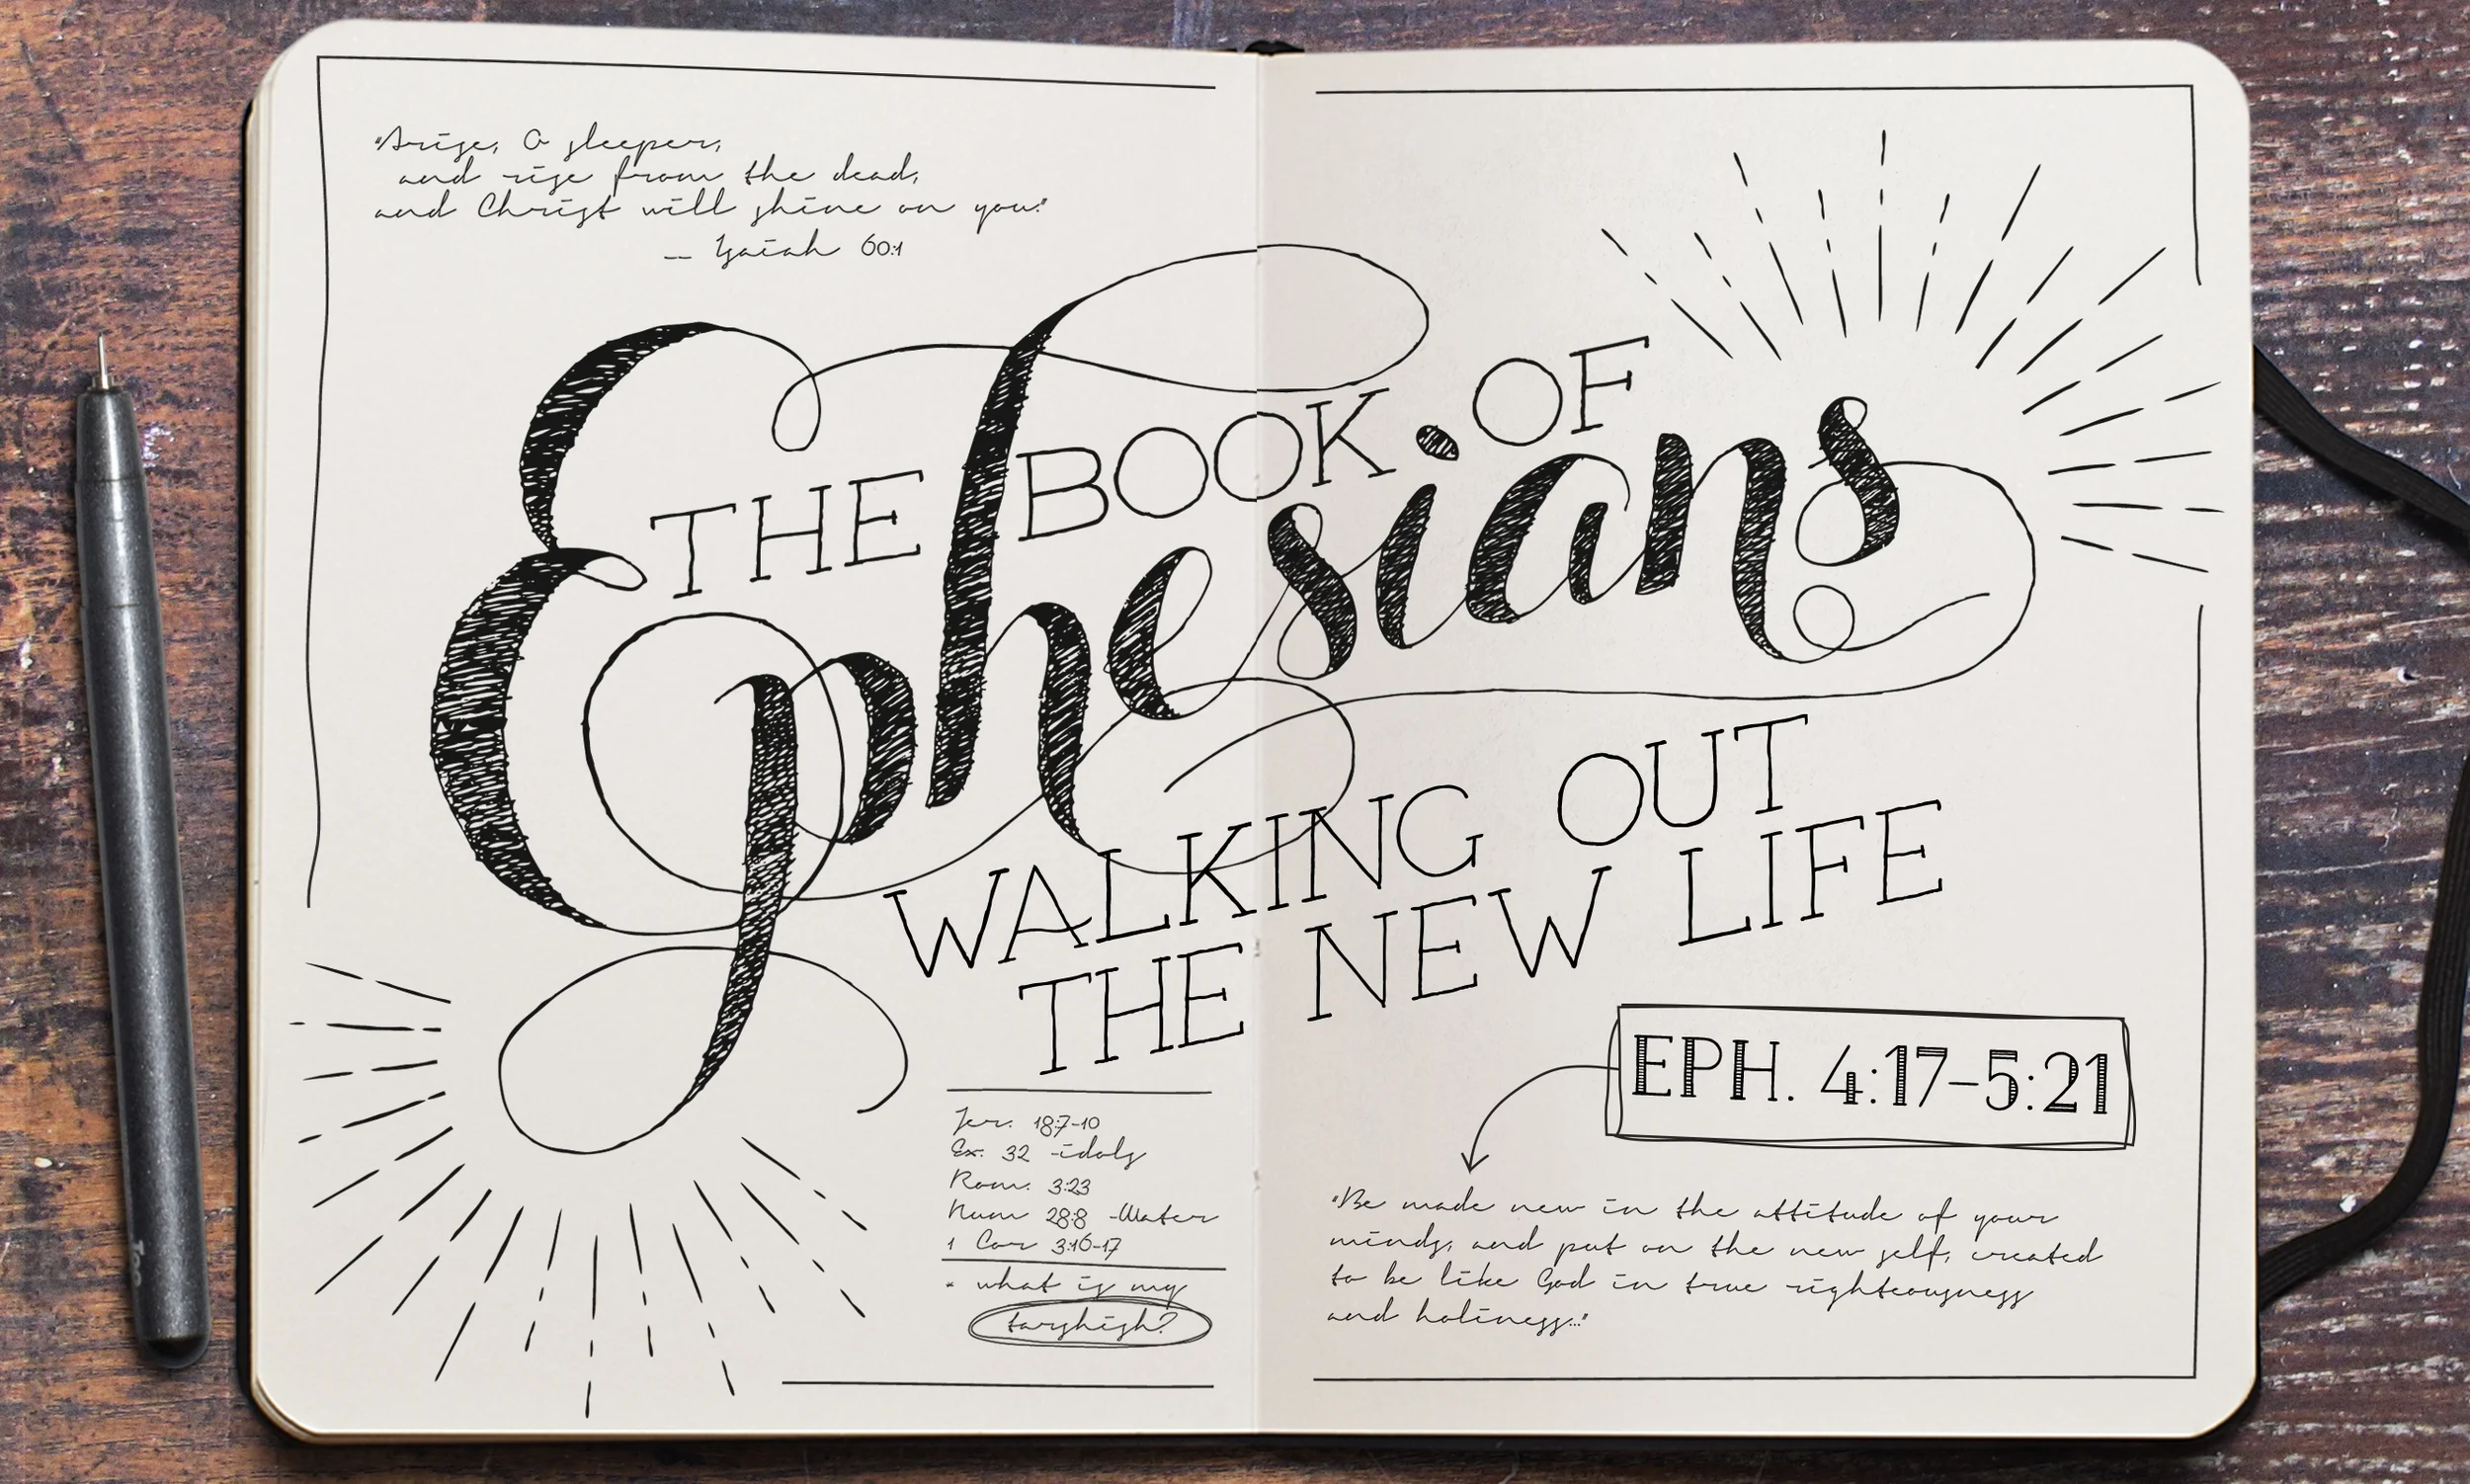 "Arise, O sleeper,
and rise from the dead,
and Christ will shine on you."
-- Isaiah 60:1
THE BOOK OF
Ephesians
WALKING OUT
THE NEW LIFE
EPH. 4:17-5:21
Jer. 18:7-10
Ex. 32 -idols
Rom. 3:23
Num 28:8 -Water
1 Cor 3:16-17
- what is my
tarshish?
"Be made new in the attitude of your
minds, and put on the new self, created
to be like God in true righteousness
and holiness..."